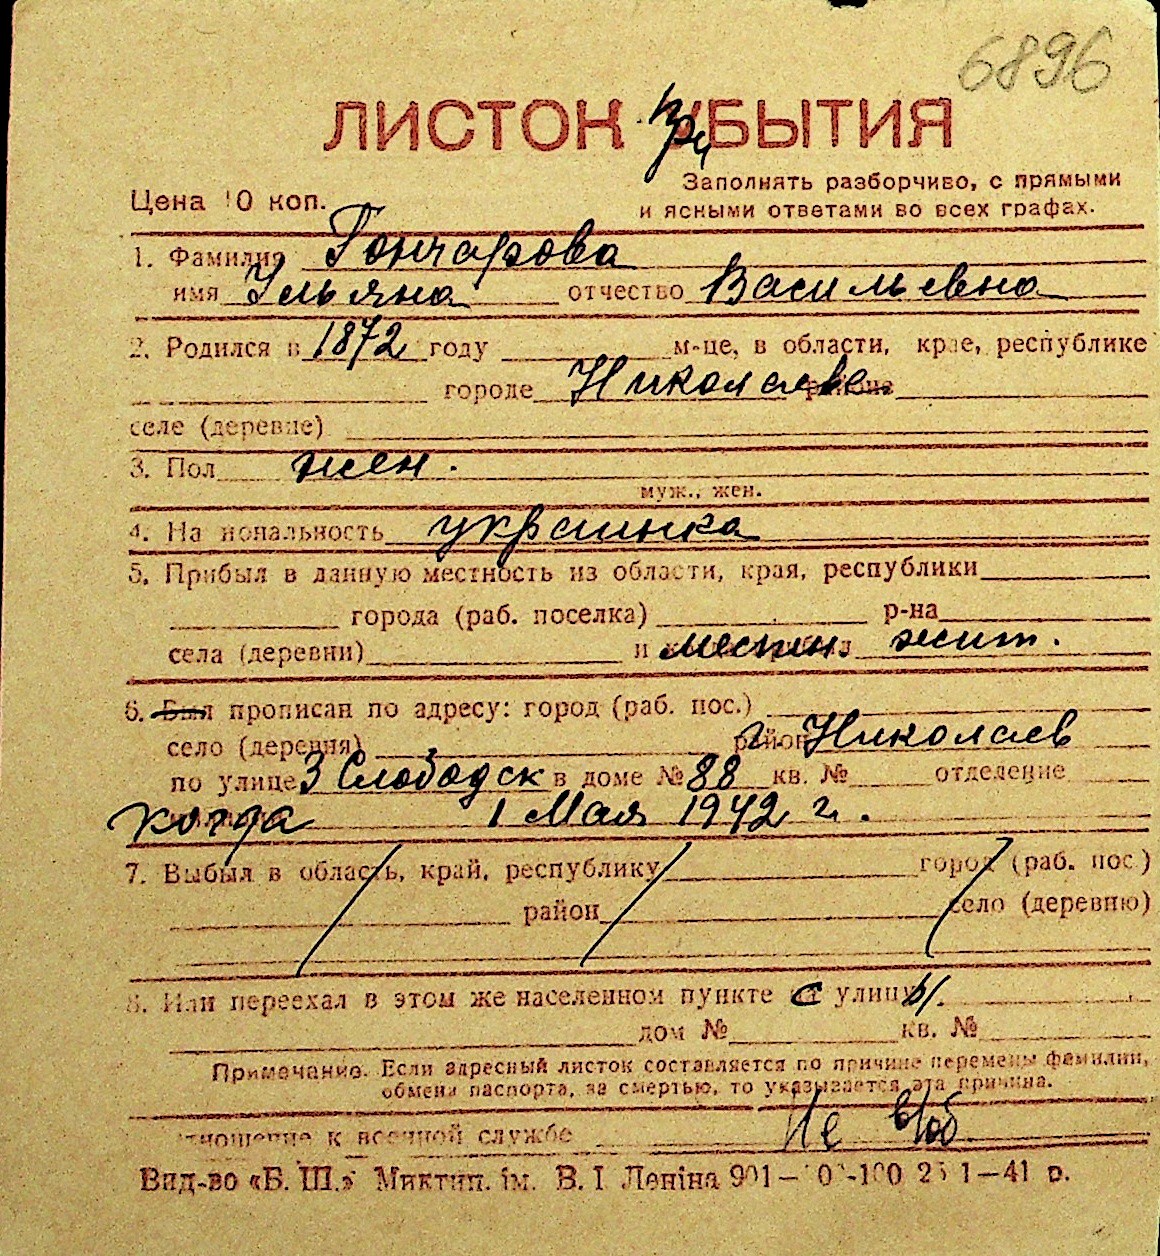 6896
ЛИСТОК при УБЫТИЯ
Цена 10 коп.
Заполнять разборчиво, с прямыми
и ясными ответами во всех графах.
1. Фамилия Гончарова
имя Ульяна отчество Васильевна
2. Родился в 1872 году м-це, в области, крае, республике
городе Николаеве района
селе (деревне)
3. Пол жен.
муж., жен.
4. Национальность украинка
5. Прибыл в данную местность из области, края, республики
города (раб. поселка) р-на
села (деревни) и местн. жит.
6. Был прописан по адресу: город (раб. пос.)
село (деревня) район г. Николаев
по улице 3 Слободск в доме № 88 кв. № отделение
когда 1 Мая 1942 г.
7. Выбыл в область, край, республику город (раб. пос.)
район село (деревню)
8. Или переехал в этом же населенном пункте с улицы
дом № кв. №
Примечание. Если адресный листок составляется по причине перемены фамилии,
обмена паспорта, за смертью, то указывается эта причина.
отношение к военной службе Не в/об
Вид-во «Б. Ш.» Миктип. ім. В. І Леніна 901— 25 1—41 р.